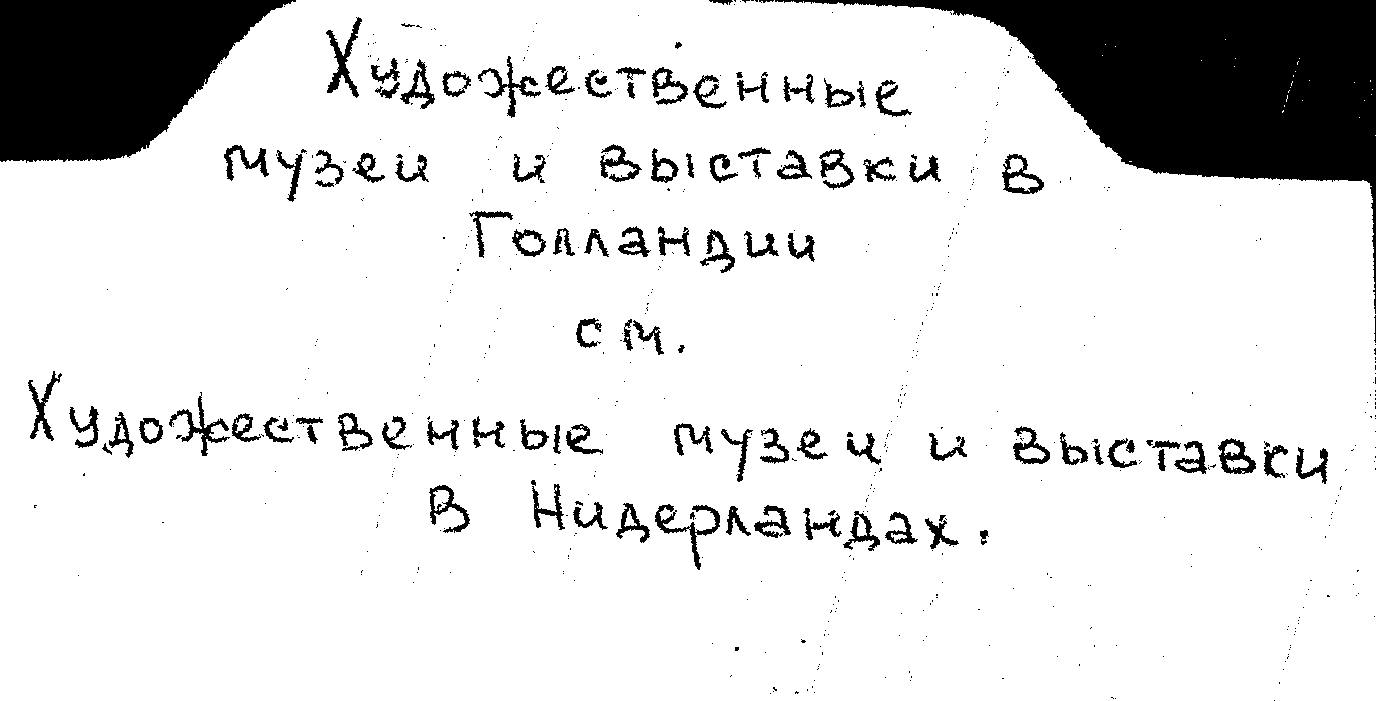 Художественные
музеи и выставки в
Голландии
см.
Художественные музеи и выставки
в Нидерландах.